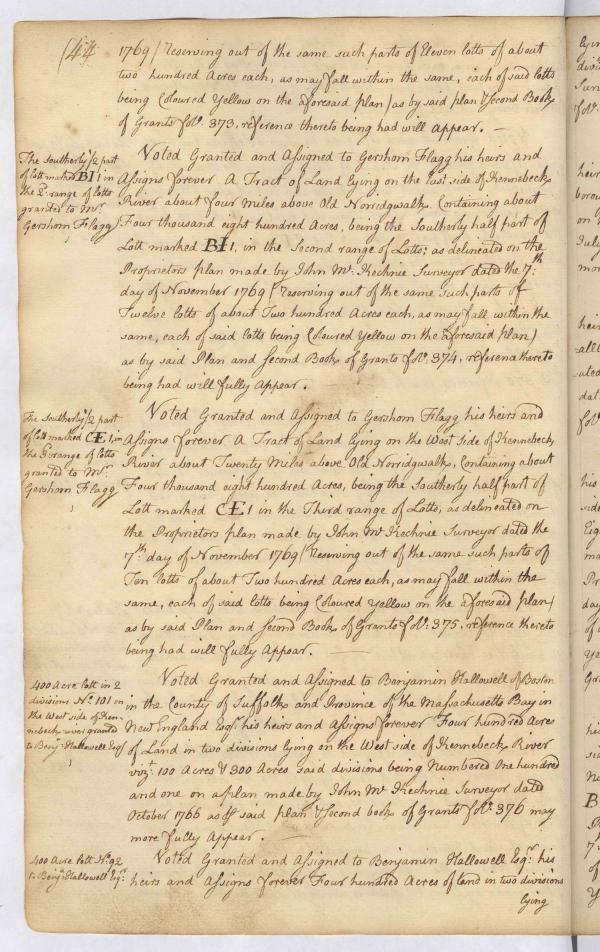 (44
1769) Reserving out of the same such parts of Eleven lotts of about
two hundred Acres each, as may fall within the same, each of said lotts
being Coloured Yellow on the aforesaid plan) as by said plan & Second Book
of Grants fol⁰. 373. reference thereto being had will appear. —
The Southerly 1/2 part
of lott marked BI1 in
the 2ᵈ range of lotts
granted to Mʳ
Gershom Flagg
Voted Granted and Assigned to Gershom Flagg his heirs and
Assigns forever A Tract of Land lying on the East side of Kennebeck
River about four Miles above Old Norridgwalk, Containing about
Four thousand eight hundred Acres, being the Southerly half part of
Lott marked BI1, in the Second range of Lotts; as delineated on the
Proprietors plan made by John Mᶜ Kechnie Surveyor dated the 7ᵗʰ
day of November 1769 (Reserving out of the same such parts of
Twelve lotts of about Two hundred Acres each, as may fall within the
same, each of said lotts being Coloured Yellow on the aforesaid plan)
as by said Plan and Second Book of Grants fol⁰. 374. reference thereto
being had will fully Appear.
The Southerly 1/2 part
of lott marked CE1, in
the 3ᵈ range of lotts
granted to Mʳ
Gershom Flagg
Voted Granted and Assigned to Gershom Flagg his heirs and
Assigns forever A Tract of Land lying on the West Side of Kennebeck
River about Twenty Miles above Old Norridgwalk, Containing about
Four thousand eight hundred Acres, being the Southerly half part of
Lott marked CE1 in the Third range of Lotts, as delineated on
the Proprietors plan made by John Mᶜ Kechnie Surveyor dated the
7ᵗʰ day of November 1769 (Reserving out of the same such parts of
Ten lotts of about Two hundred Acres each, as may fall within the
same, each of said lotts being Coloured Yellow on the aforesaid plan)
as by said Plan and Second Book of Grants fol⁰. 375. reference thereto
being had will fully Appear. —
400 Acre lott in 2
divisions Nº. 101 on
the West side of Ken-
nebeck river granted
to Benjᵃ Hallowell Esqʳ
Voted Granted and Assigned to Benjamin Hallowell of Boston
in the County of Suffolk and Province of the Massachusetts Bay in
New England Esqʳ his heirs and Assigns forever Four hundred Acres
of Land in two divisions lying on the West side of Kennebeck River
vizᵗ. 100 Acres & 300 Acres said divisions being Numbered One hundred
and one on a plan made by John Mᶜ Kechnie Surveyor dated
October 1766 as ⅌ said plan & Second book of Grants fol⁰. 376 may
more fully Appear. —
400 Acre lott Nº. 92
to Benjᵃ Hallowell Esqʳ.
Voted Granted and Assigned to Benjamin Hallowell Esqʳ. his
heirs and Assigns forever Four hundred Acres of land in two divisions
lying